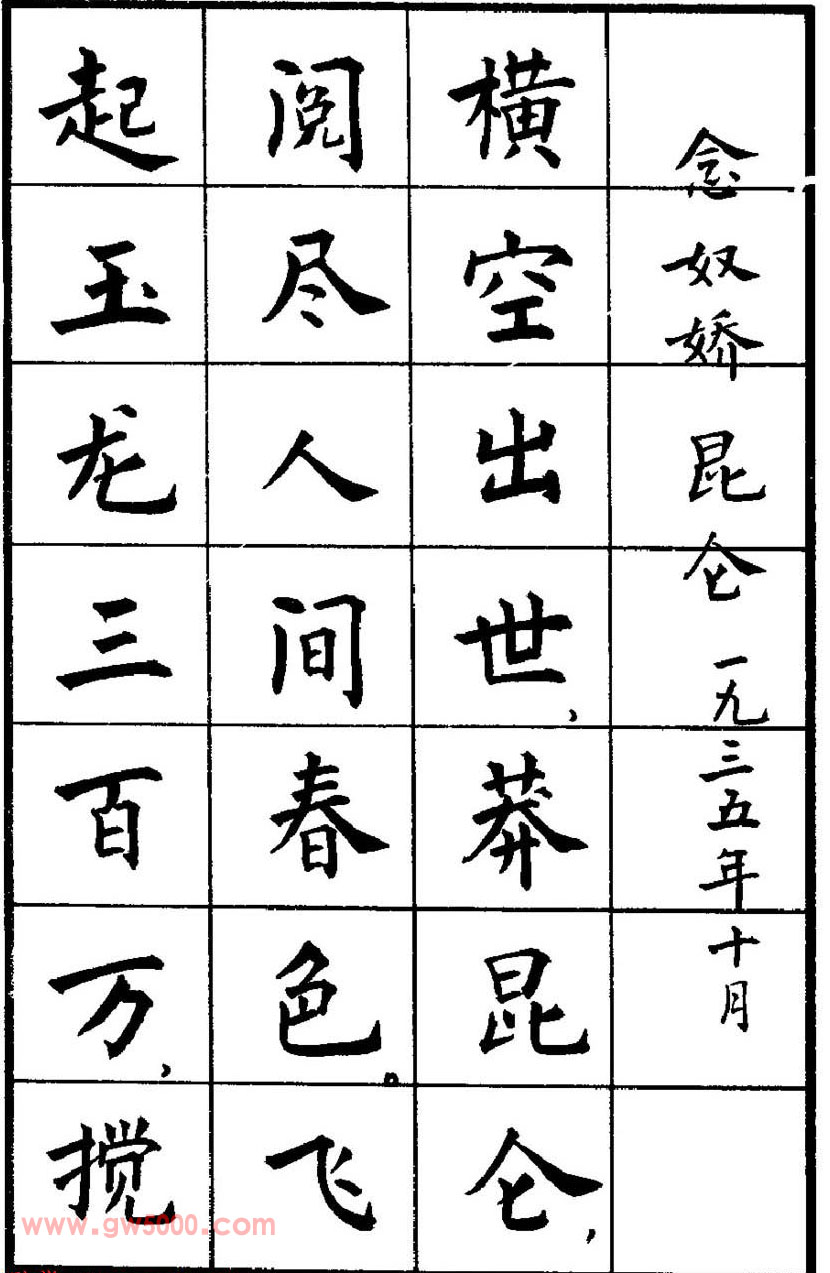 念奴娇 昆仑 一九三五年十月
横空出世，莽昆仑，
阅尽人间春色。飞
起玉龙三百万，搅
www.gw5000.com